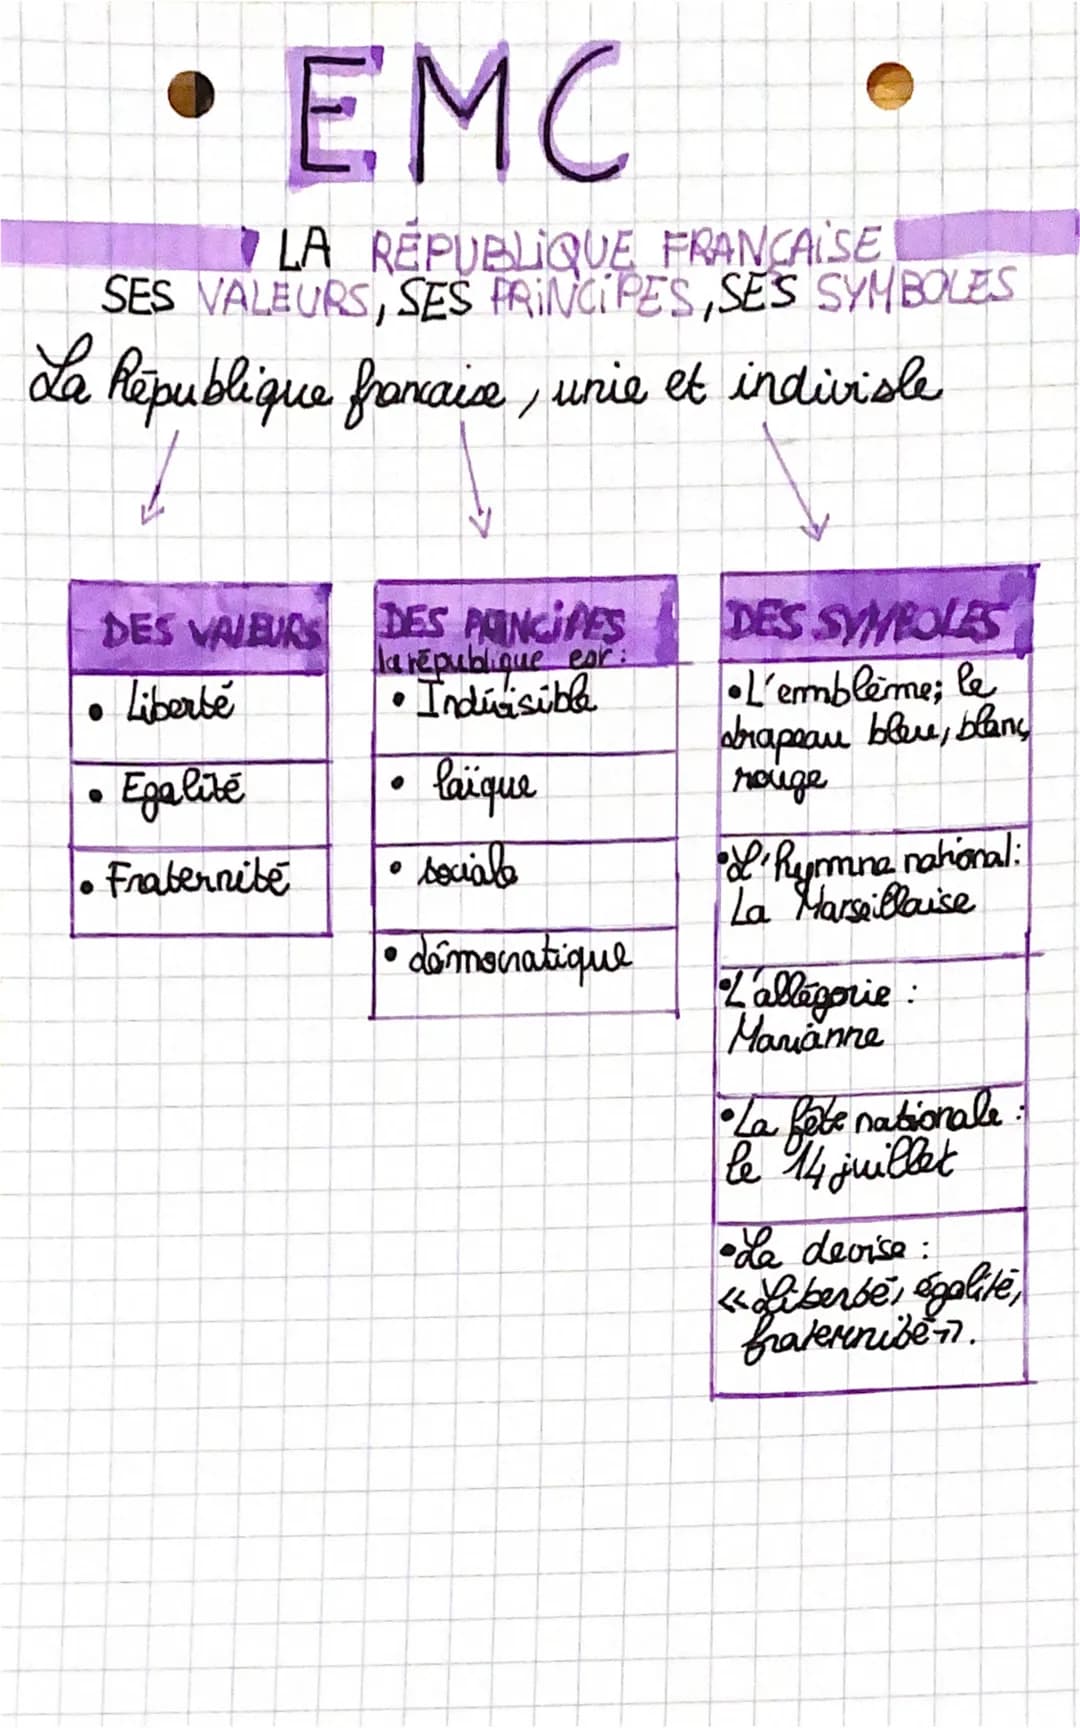 EMC
LA RÉPUBLIQUE FRANÇAISE
SES VALEURS, SES PRINCIPES, SES SYMBOLES
La République francaise, unie et indivisle
DES VALEURS
• Liberté
• Egalité
• Fraternité
DES PRINCIPES
la république est :
• Indivisible
• laïque
• sociale
• démocratique
DES SYMBOLES
• L'emblème; le
drapeau bleu, blanc,
rouge
• L'hymne national:
La Marseillaise
• L'allégorie :
Marianne
• La fête nationale :
le 14 juillet
• La devise :
«Liberté, égalité,
fraternité».